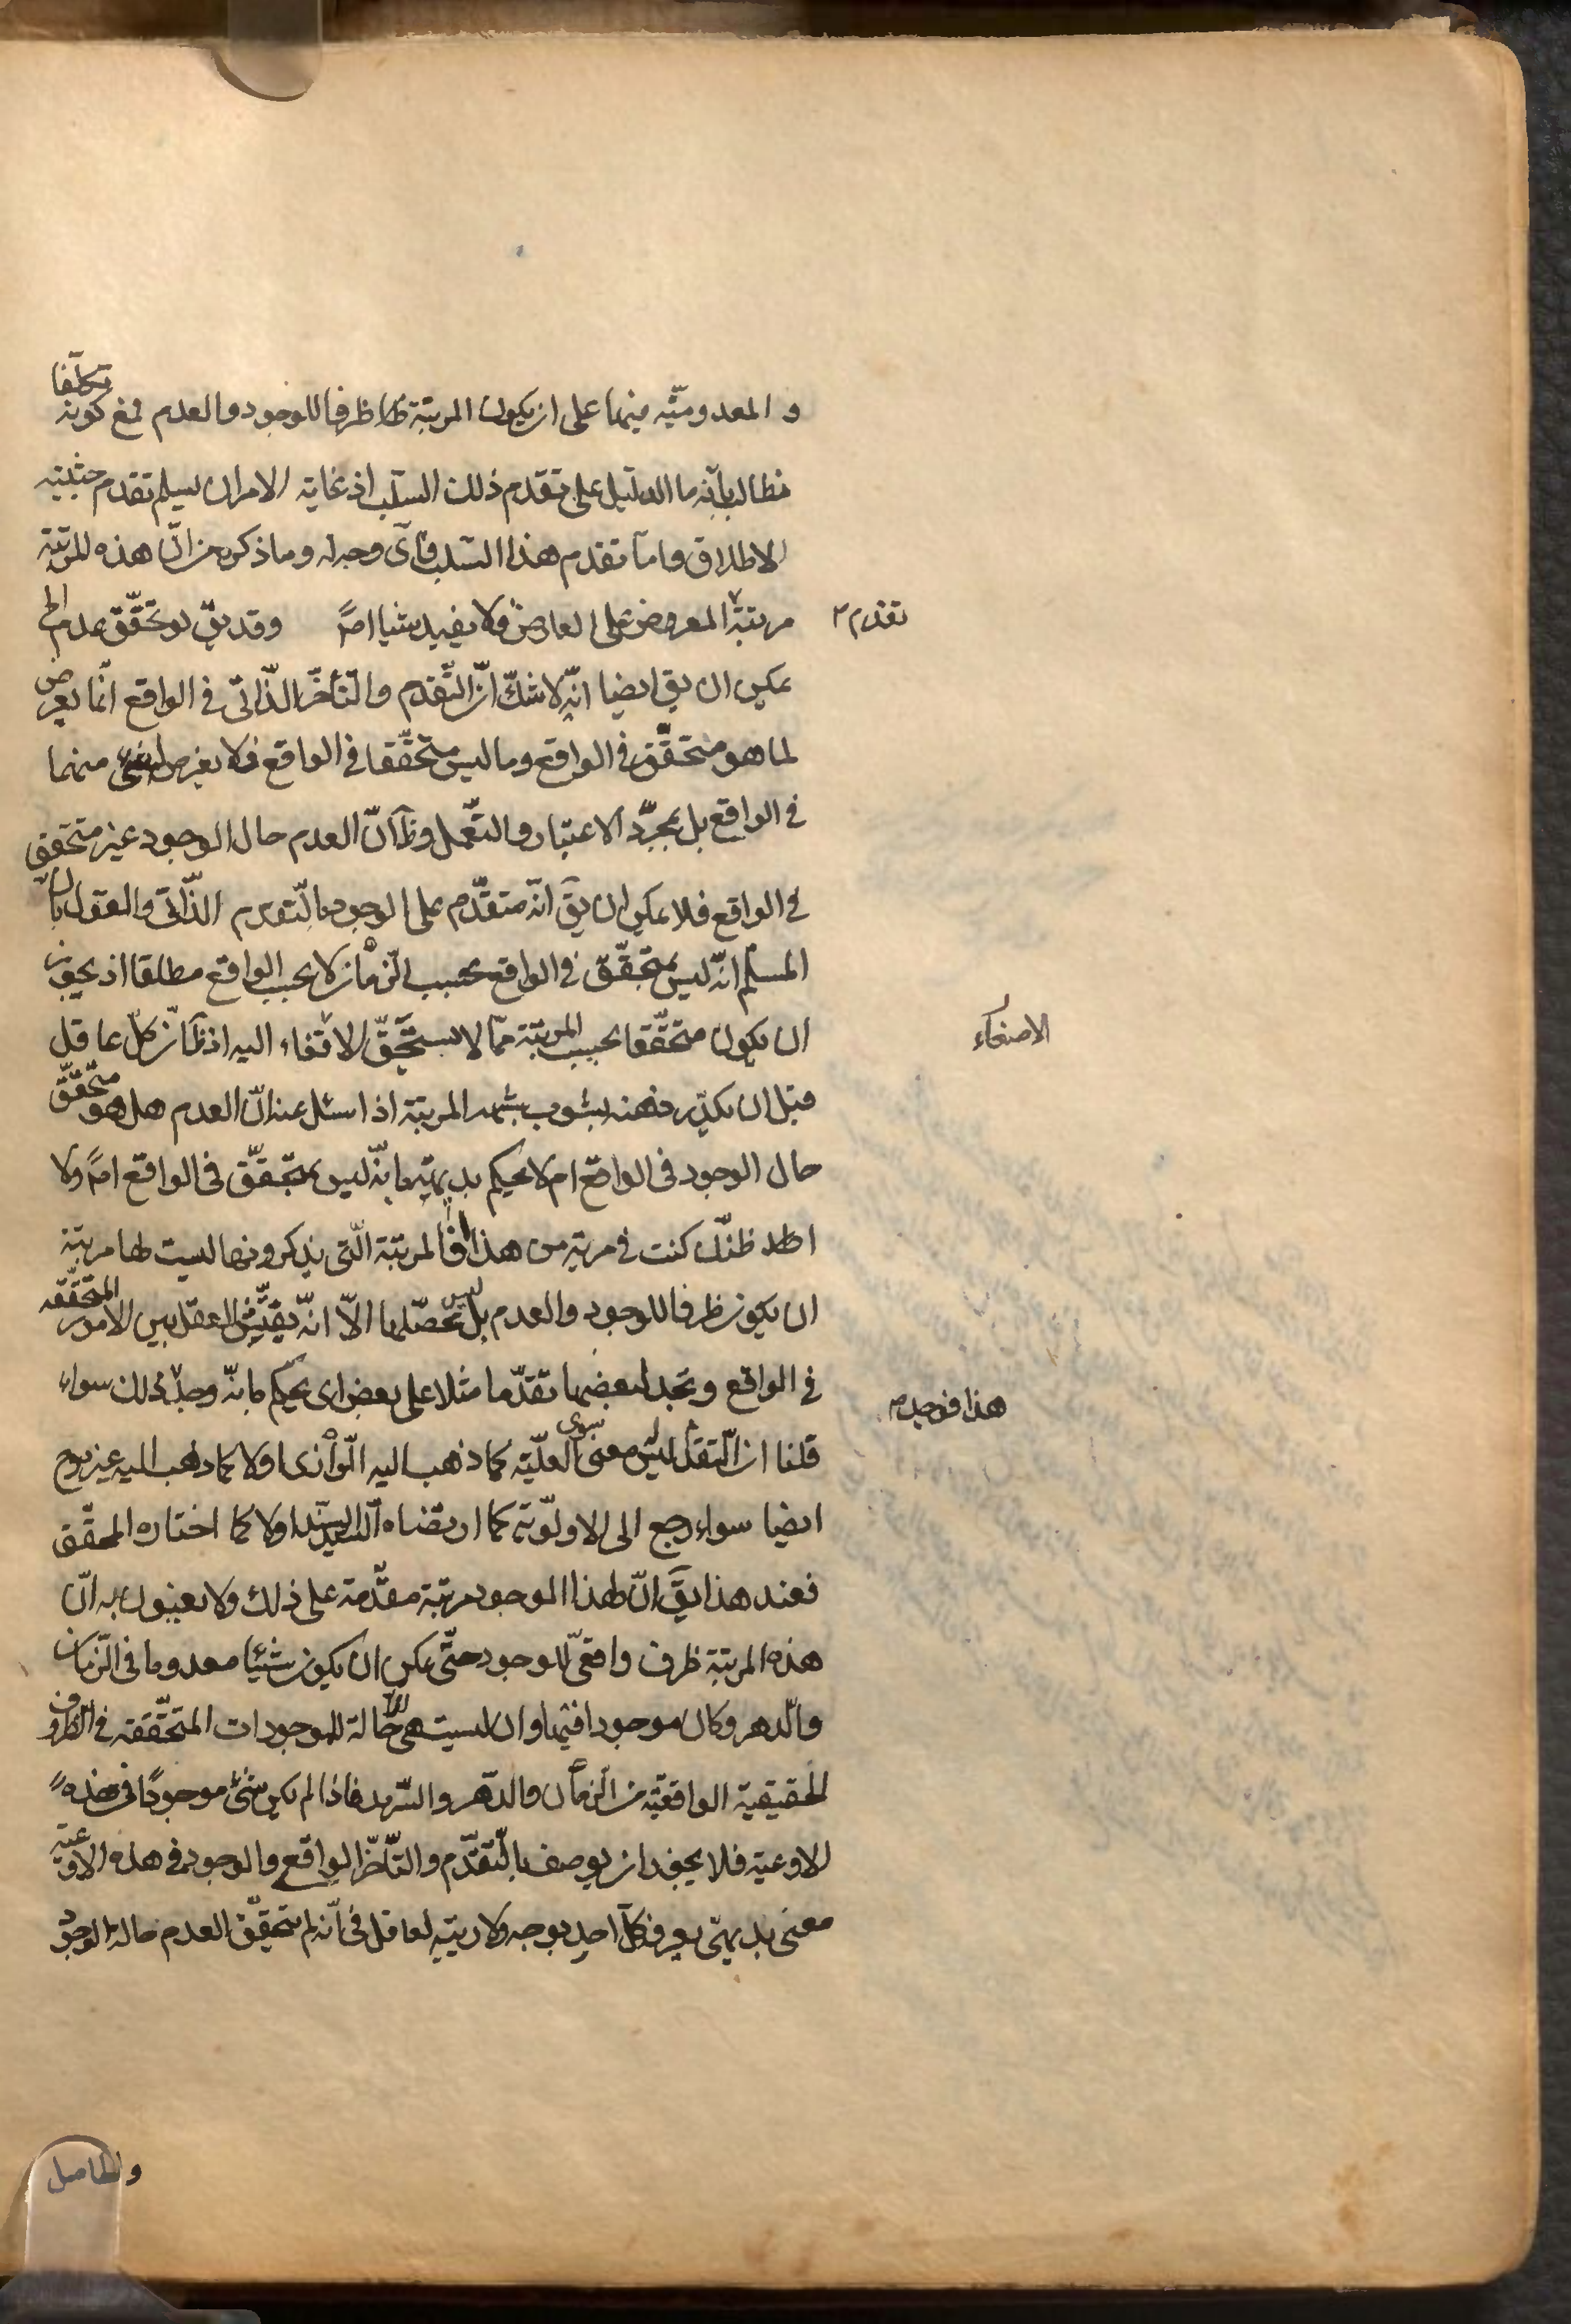 و المعدوميّة فيهما على ان يكون المرتبة ظرفا للوجود والعدم فمع كونه تكلّفا
نطالب بانّه ما الدليل على تقدم ذلك السلب اذ غاية الامر ان يسلم تقدم حيثية
الاطلاق واما تقدم هذا السلب فاىّ وجه له وما ذكره من انّ هذه المرتبة
مرتبة المعروض على العارض فلا يفيد شيئا اصلاً وقد يقّ لو تحقّق عدم
تقدم
يمكن ان يق ايضا انّه لا شكّ انّ التّقدم والتّأخّر الذّاتى فى الواقع انّما يعرض
لما هو متحقّق فى الواقع وما ليس متحقّقا فى الواقع فلا يعرض له شئ منهما
فى الواقع بل بمجرّد الاعتبار والتعمّل وظآ انّ العدم حال الوجود غير متحقق
فى الواقع فلا يمكن ان يقّ انّه متقدّم على الوجود بالتّقدم الذّاتى والقول بانّ
المسلم انّه ليس بمتحقّق فى الواقع بحسب الزمان لا بحسب الواقع مطلقا اذ يجوز
ان يكون متحقّقا بحسب المرتبة ممّا لا يستحقّ الاصغاء اليه اذ ظآ انّ كلّ عاقل
الاصغاء
قبل ان يكدّر ذهنه بشوب شبهه المرتبة اذا سئل عنه انّ العدم هل هو متحقّق
حال الوجود فى الواقع ام لا يحكم بديهة بانّه ليس بمتحقّق فى الواقع اصلاً ولا
اظنك كنت فى مرية من هذا المرتبة الّتى يذكرونها ليست لها مرتبة
ان يكون ظرفا للوجود والعدم بل ليس محصّلها الّا انّه يفتّش العقل بين الامور المتحقّقه
فى الواقع ويجد لبعضها تقدّما مثلا على بعض اى يحكم بانّه وجد فذلك سواء
هذا فوجد
قلنا ان التّقدم ليس معنى سوى العليّة كما ذهب اليه الدّوانى او لا كما ذهب اليه غيره وح
ايضا سواء رجع الى الاولويّة كما ارتضاه السيد السّند او لا كما اختاره المحقّق
فعند هذا يقّ انّ لهذا الموجود مرتبة مقدّمة على ذلك ولا يعنون به انّ
هذه المرتبة ظرف واقعىّ للوجود حتّى يمكن ان يكون شيئا معدوما فى الزمان
والدّهر وكان موجودا فيها وان ليست هى الّا حالة للموجودات المتحقّقه فى الظروف
الحقيقية الواقعيّة من الزمان والدّهر والسّرمد فاذا لم يكن شئ موجودًا فى هذه
الاوعية فلا يجوز ان يوصف بالتّقدّم والتّأخّر الواقع والوجود فى هذه الاوعية
معنى بديهىّ يعرفه كلّ احد بوجه ولا ريبة لعاقل فى انّه لم يتحقّق العدم حالة الوجود
والحاصل